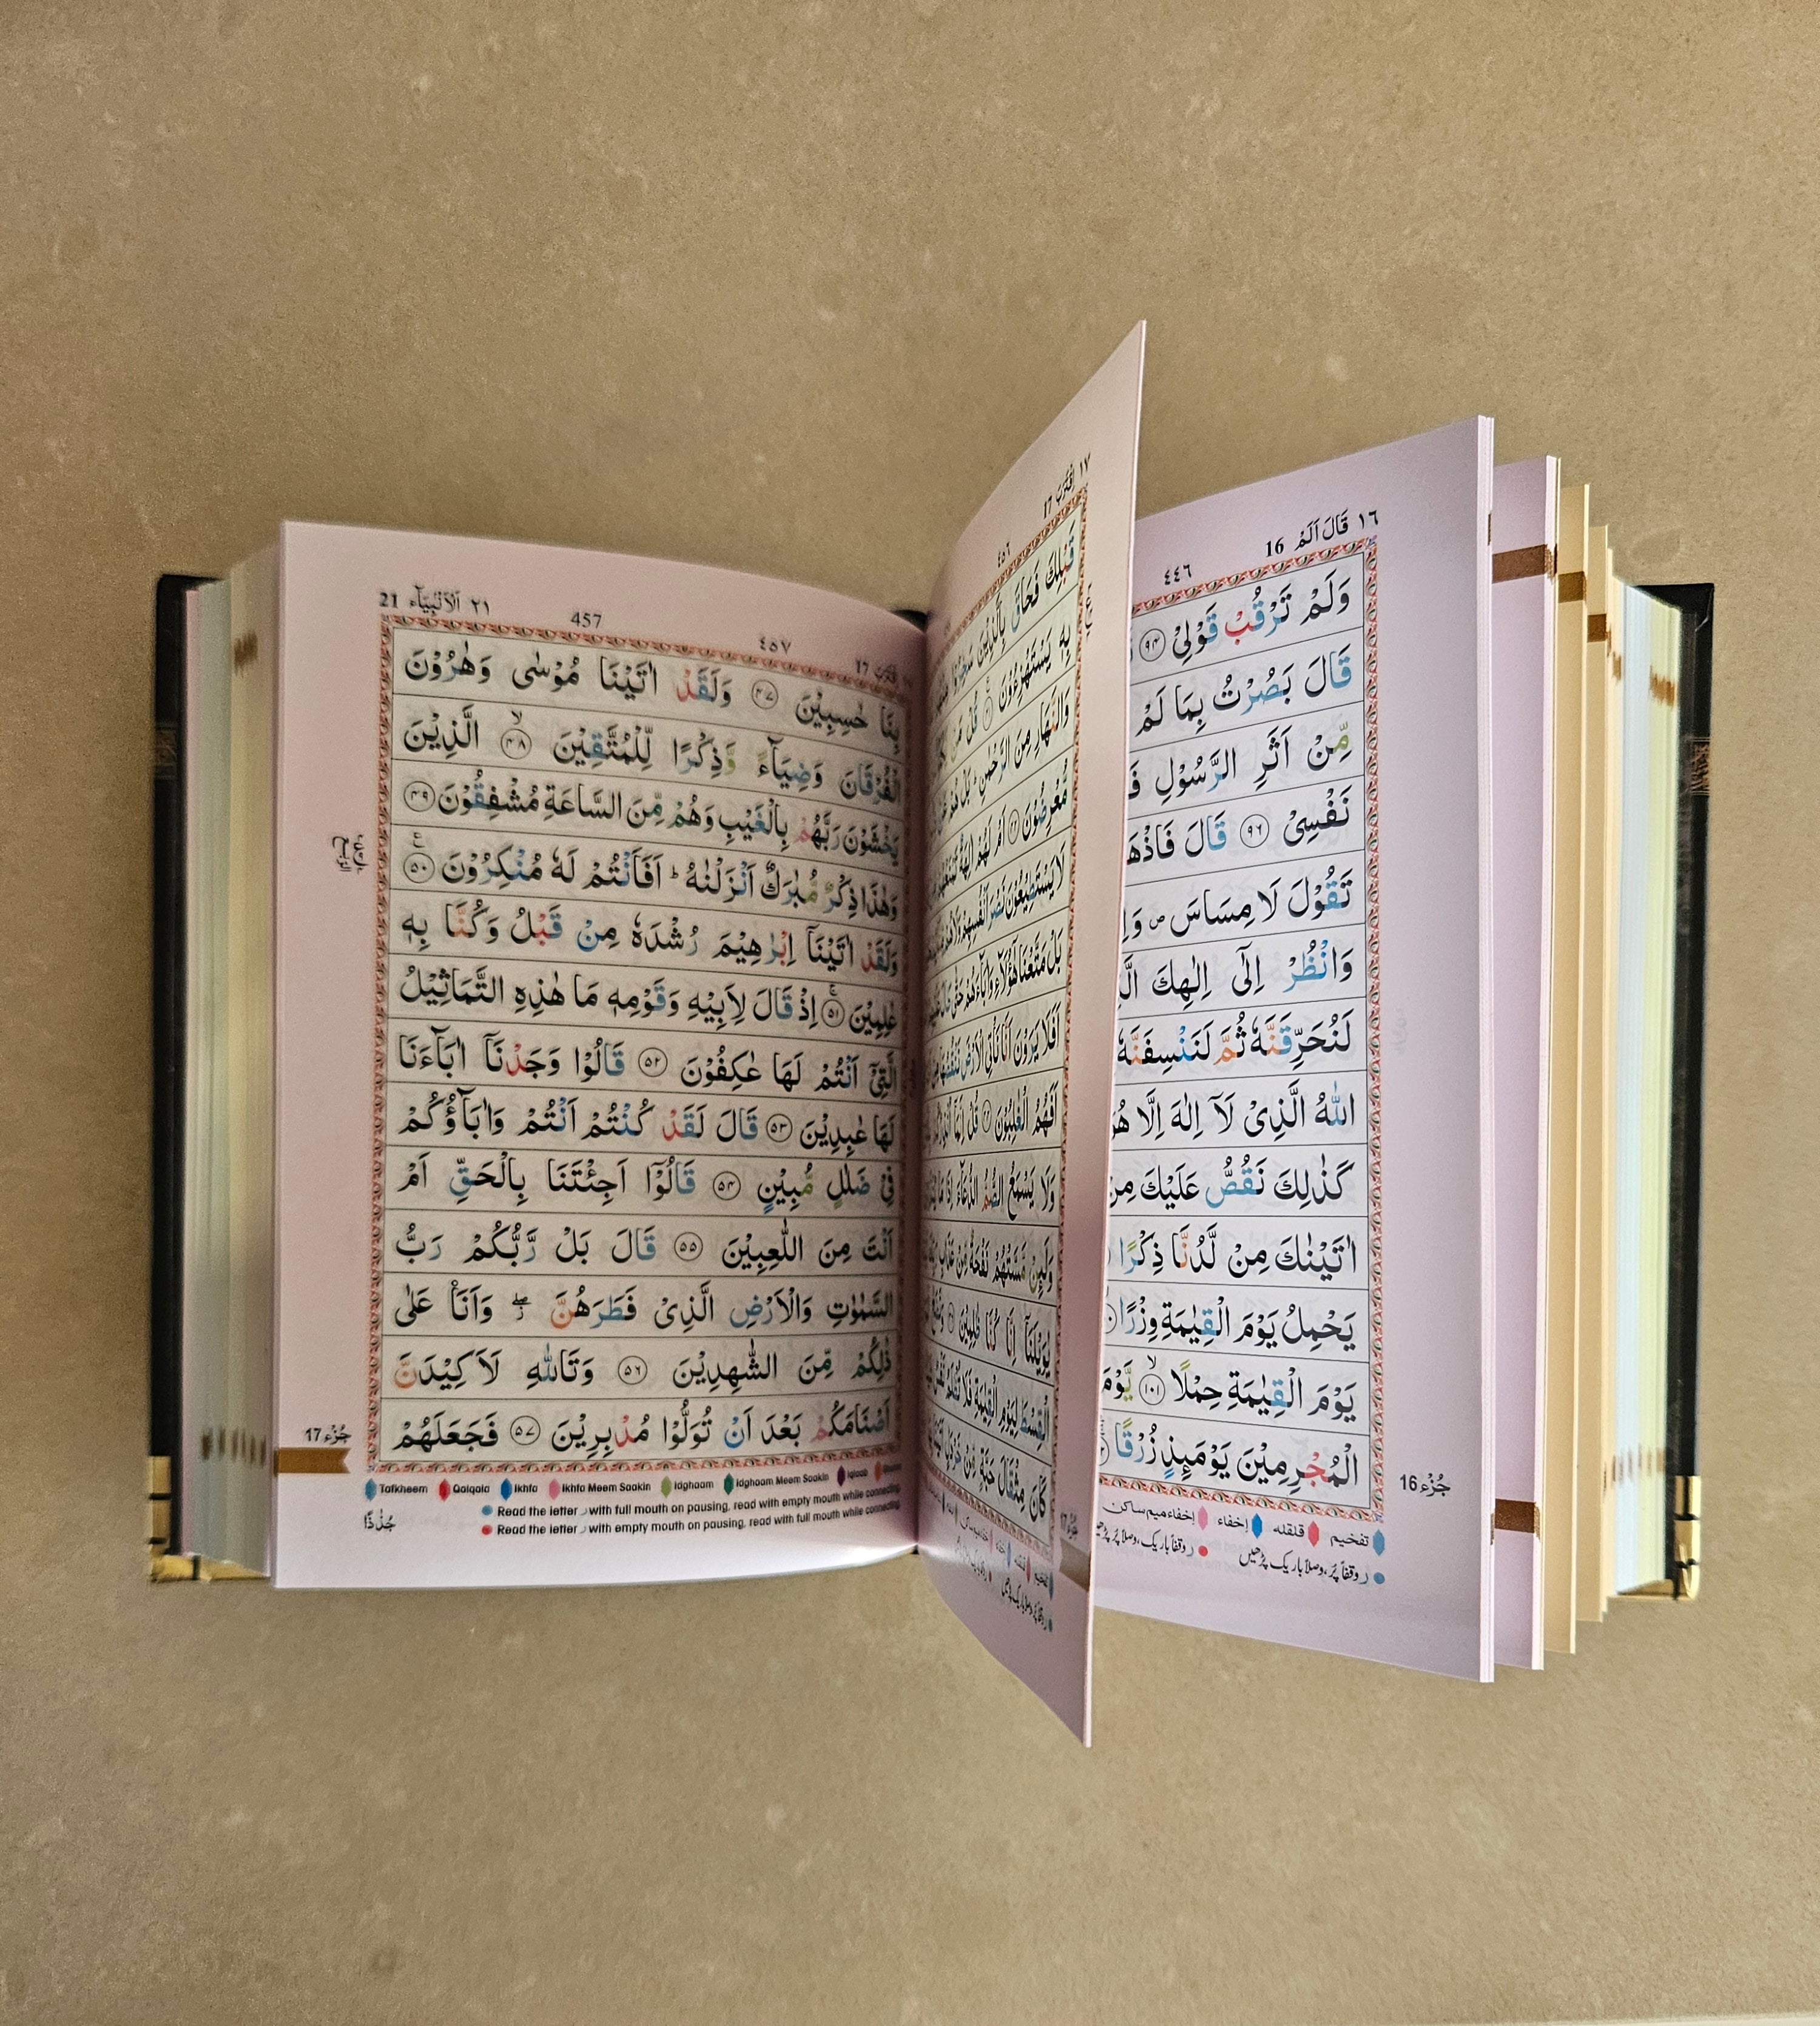 ١٦ قَالَ اَلَمْ 16
٤٤٦
وَلَمْ تَرْقُبْ قَوْلِىْ ﴿٩٤﴾
قَالَ بَصُرْتُ بِمَا لَمْ
مِّنْ اَثَرِ الرَّسُوْلِ
نَفْسِىْ ﴿٩٦﴾ قَالَ
تَقُوْلَ لَا مِسَاسَ ص
وَانْظُرْ اِلٰٓى اِلٰهِكَ
لَنُحَرِّقَنَّهٗ ثُمَّ لَنَنْسِفَنَّهٗ
اللّٰهُ الَّذِىْ لَآ اِلٰهَ اِلَّا
كَذٰلِكَ نَقُصُّ عَلَيْكَ
اٰتَيْنٰكَ مِنْ لَّدُنَّا ذِكْرًا
يَحْمِلُ يَوْمَ الْقِيٰمَةِ وِزْرًا
يَوْمَ الْقِيٰمَةِ حِمْلًا ﴿١٠١﴾ يَّوْمَ
الْمُجْرِمِيْنَ يَوْمَىِٕذٍ زُرْقًا
جُزْء 16
تفخيم قلقله إخفاء إخفاء ميم ساكن
ر وقفاً پُر، وصلاً باریک پڑھیں
ر وقفاً باریک، وصلاً پُر
١٧ اِقْتَرَبَ 17
٤٥٦
قَبْلِكَ فَحَاقَ بِالَّذِيْنَ
بِهٖ يَسْتَهْزِءُوْنَ
وَالنَّهَارِ مِنَ الرَّحْمٰنِ بَلْ هُمْ
مُّعْرِضُوْنَ اَمْ لَهُمْ اٰلِهَةٌ
لَا يَسْتَطِيْعُوْنَ نَصْرَ اَنْفُسِهِمْ
بَلْ مَتَّعْنَا هٰٓؤُلَآءِ وَاٰبَآءَهُمْ حَتّٰى
اَفَلَا يَرَوْنَ اَنَّا نَاْتِى الْاَرْضَ
اَفَهُمُ الْغٰلِبُوْنَ قُلْ اِنَّمَآ
وَلَا يَسْمَعُ الصُّمُّ الدُّعَآءَ
وَلَىِٕنْ مَّسَّتْهُمْ نَفْحَةٌ مِّنْ عَذَابِ
يٰوَيْلَنَآ اِنَّا كُنَّا ظٰلِمِيْنَ
الْقِسْطَ لِيَوْمِ الْقِيٰمَةِ فَلَا تُظْلَمُ نَفْسٌ
كَانَ مِثْقَالَ حَبَّةٍ مِّنْ خَرْدَلٍ
21 اَلْاَنْۢبِيَآء ٢١
457
٤٥٧
اِقْتَرَبَ 17
بِنَا حٰسِبِيْنَ ﴿٤٧﴾ وَلَقَدْ اٰتَيْنَا مُوْسٰى وَهٰرُوْنَ
الْفُرْقَانَ وَضِيَآءً وَّذِكْرًا لِّلْمُتَّقِيْنَ ﴿٤٨﴾ الَّذِيْنَ
يَخْشَوْنَ رَبَّهُمْ بِالْغَيْبِ وَهُمْ مِّنَ السَّاعَةِ مُشْفِقُوْنَ ﴿٤٩﴾
وَهٰذَا ذِكْرٌ مُّبٰرَكٌ اَنْزَلْنٰهُ ؕ اَفَاَنْتُمْ لَهٗ مُنْكِرُوْنَ ﴿٥٠﴾
وَلَقَدْ اٰتَيْنَآ اِبْرٰهِيْمَ رُشْدَهٗ مِنْ قَبْلُ وَكُنَّا بِهٖ
عٰلِمِيْنَ ﴿٥١﴾ اِذْ قَالَ لِاَبِيْهِ وَقَوْمِهٖ مَا هٰذِهِ التَّمَاثِيْلُ
الَّتِىْٓ اَنْتُمْ لَهَا عٰكِفُوْنَ ﴿٥٢﴾ قَالُوْا وَجَدْنَآ اٰبَآءَنَا
لَهَا عٰبِدِيْنَ ﴿٥٣﴾ قَالَ لَقَدْ كُنْتُمْ اَنْتُمْ وَاٰبَآؤُكُمْ
فِىْ ضَلٰلٍ مُّبِيْنٍ ﴿٥٤﴾ قَالُوْٓا اَجِئْتَنَا بِالْحَقِّ اَمْ
اَنْتَ مِنَ اللّٰعِبِيْنَ ﴿٥٥﴾ قَالَ بَلْ رَّبُّكُمْ رَبُّ
السَّمٰوٰتِ وَالْاَرْضِ الَّذِىْ فَطَرَهُنَّ ۖ وَاَنَا عَلٰى
ذٰلِكُمْ مِّنَ الشّٰهِدِيْنَ ﴿٥٦﴾ وَتَاللّٰهِ لَاَكِيْدَنَّ
اَصْنَامَكُمْ بَعْدَ اَنْ تُوَلُّوْا مُدْبِرِيْنَ ﴿٥٧﴾ فَجَعَلَهُمْ
جُزْء 17
Tafkheem Qalqala Ikhfa Ikhfa Meem Saakin Idghaam Idghaam Meem Saakin Iqlaab
Read the letter ر with full mouth on pausing, read with empty mouth while connecting
Read the letter ر with empty mouth on pausing, read with full mouth while connecting
جُذٰذًا